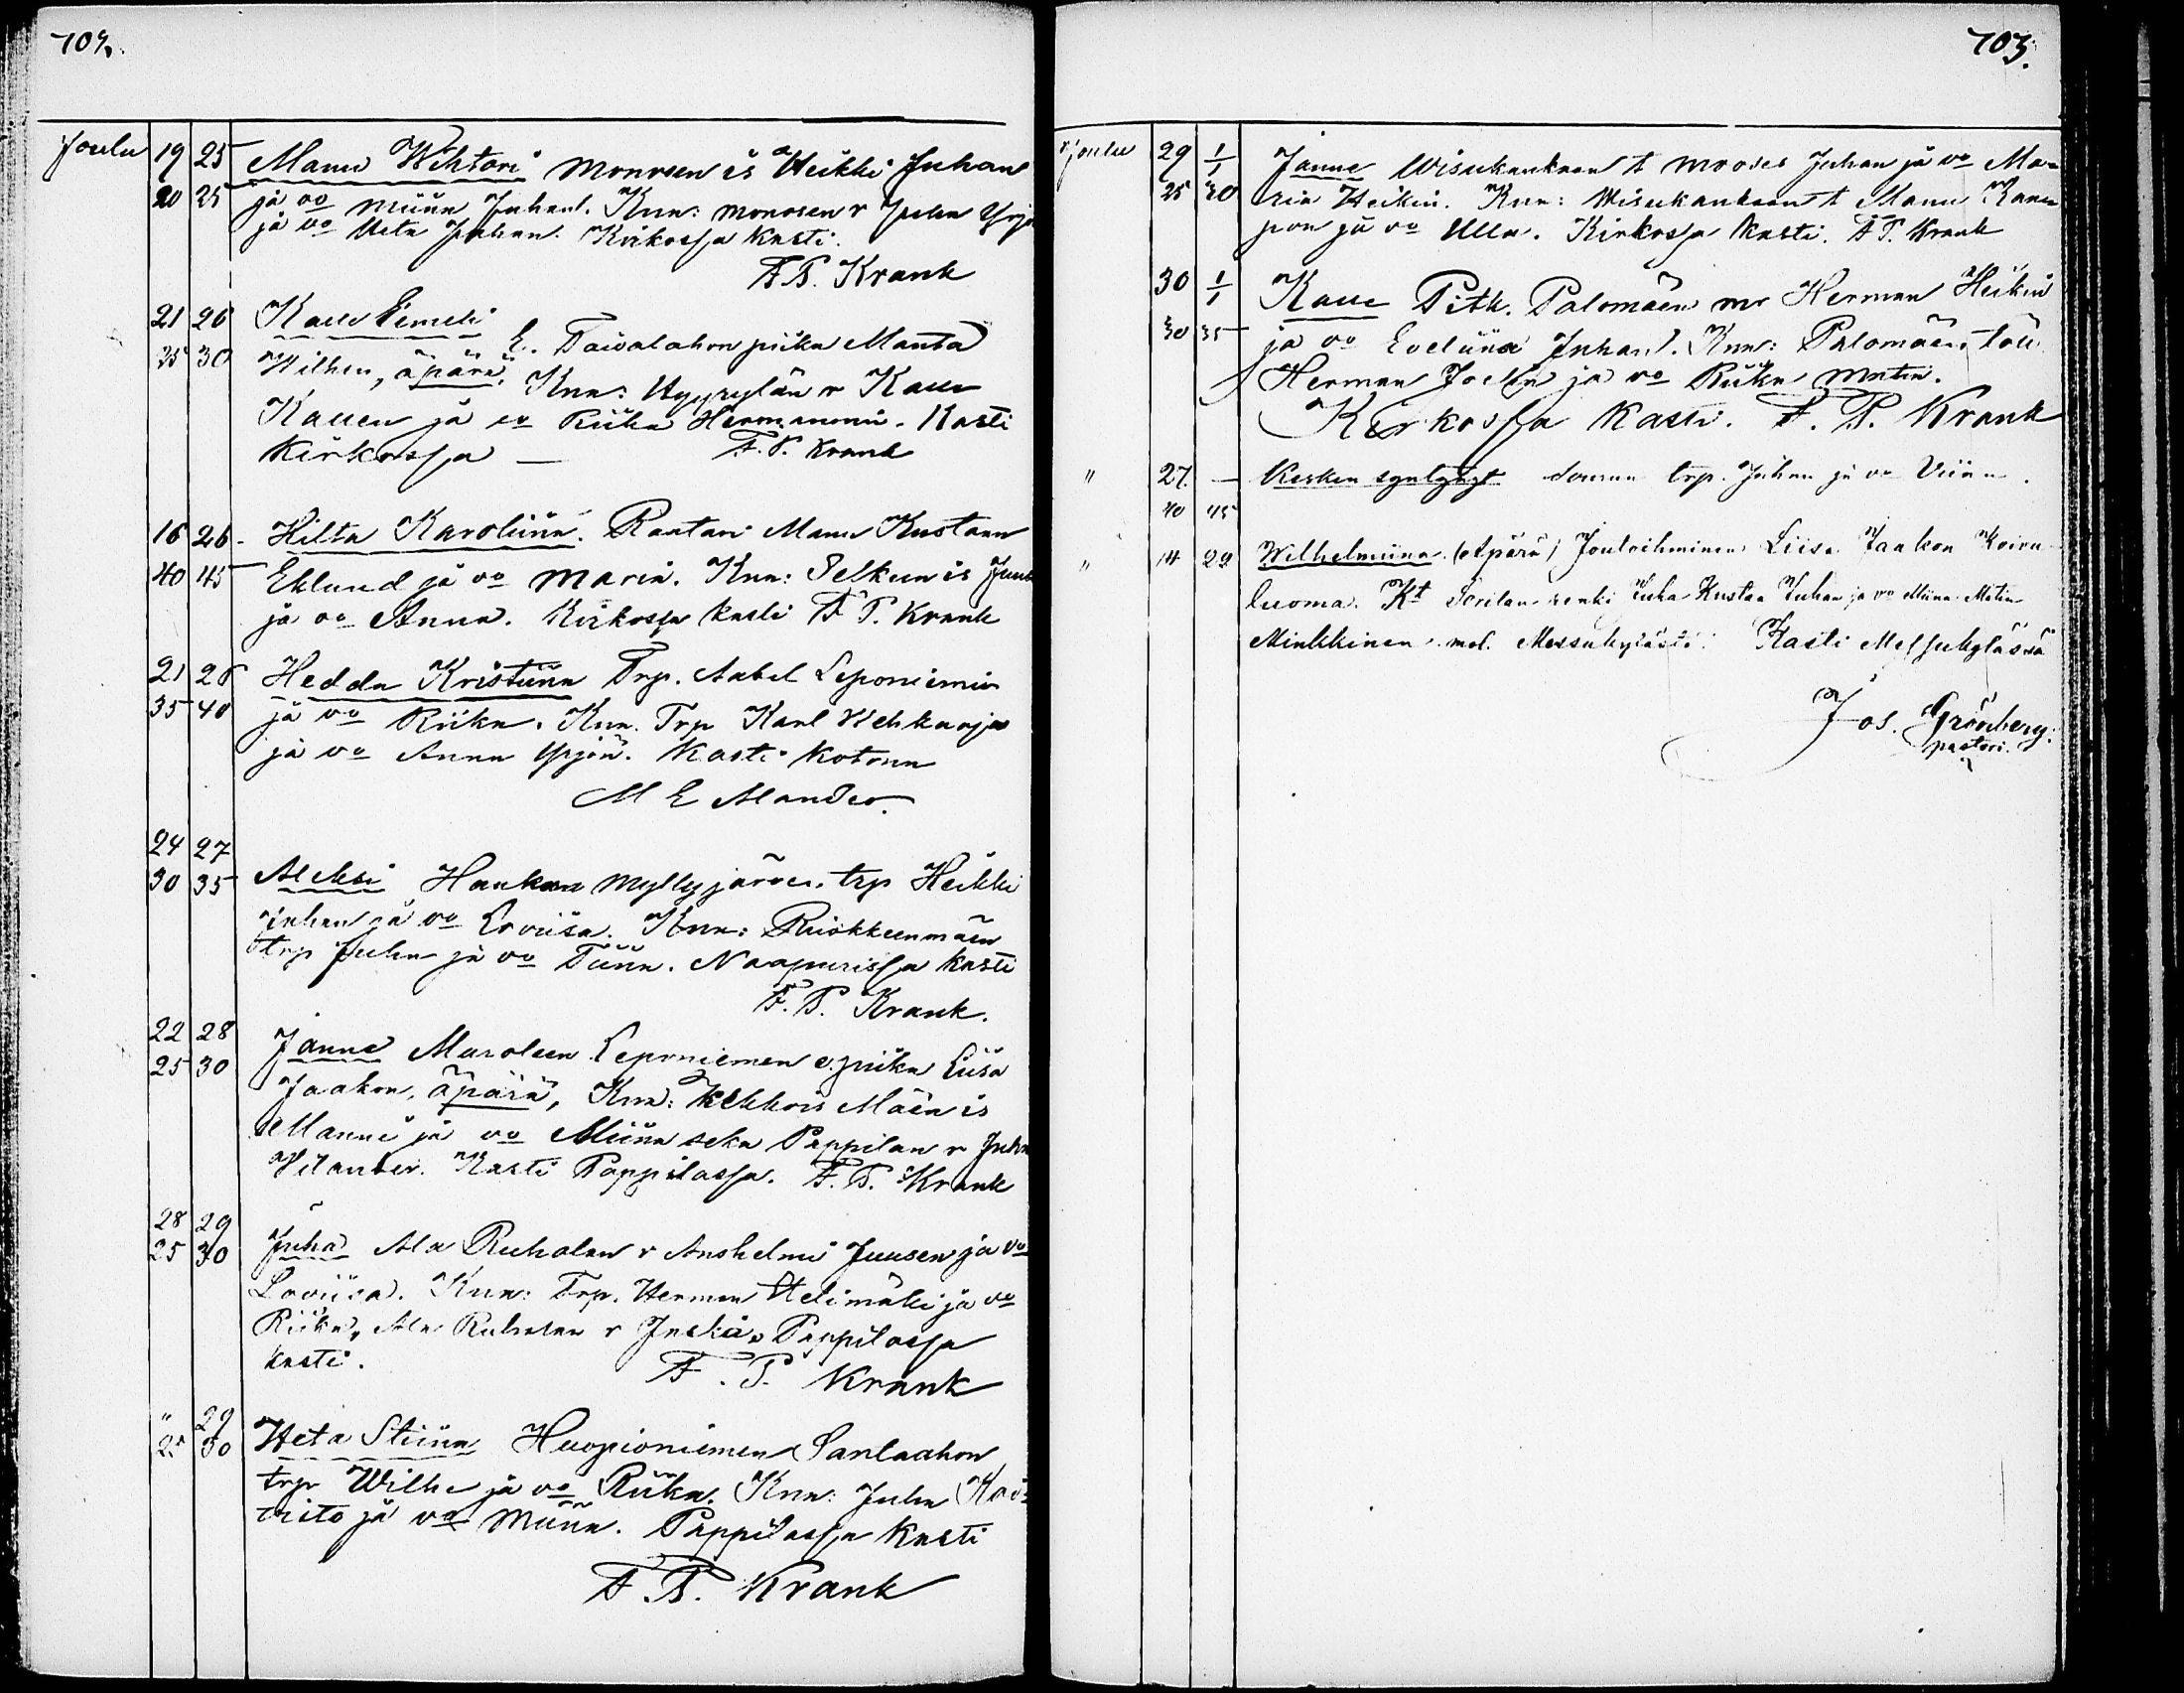 702.
Joulu 19 25 Manu Wihtori Monosen is Heikki Juhan
20 25 ja vo Miina Juhant. Knn: Monosen r Juha Yrjö
ja vo Heta Juhan. Kirkossa kasti.
F. P. Krank
21 26 Kalle Eemeli E. Taivalahon piika Manta
25 30 Wilhen, äpärä. Knn: Hyyrylän r Kalle
Kallen ja vo Riika Hermannin. Kasti
Kirkossa — F. P. Krank
16 26 Hilta Karoliina. Raatari Manu Kustaan
40 45 Eklund ja vo Maria. Knn: Selkeen is
ja vo Anna. Kirkossa kasti F P. Krank
21 26 Hedda Kristiina Trp. Aabel Leponiemi
35 40 ja vo Riika. Knn. Trp Karl
ja vo Anna Yrjön. Kasti kotona
M E Alander.
24 27
30 35 Aleksi Haukan Myllyjärven trp Heikki
Juhan ja vo Loviisa. Knn: Riiokkeenmäen
trp Juha ja vo Tiina. Naapurissa kasti
F. P. Krank.
22 28 Janne Maroleen Leponiemen e. piika Liisa
25 30 Jaakon, äpärä, Knn: Mäen is
Manne ja vo Miina seka Pappilan r Juha
Vilander. Kasti Pappilassa. F. P. Krank
28 29
25 30 Juha Ala Ruhalan r Anshelmi Juusen ja vo
Loviisa. Knn: Trp. Herman Helimäki ja vo
Riika, Ala Ruhalan r Pappilassa
kasti. F. P. Krank
" 29
25 30 Heta Stiina Huopioniemen Santaahon
trp Wilhe ja vo Riika. Knn: Juha Koi=
visto ja vo Miina. Pappilassa kasti
F. P. Krank
703.
Joulu 29 1/1 Janne Wisukankaan t Mooses Juhan ja vo Ma=
25 30 ria Heikin. Knn: Wisukankaan t Manu
ja vo Ulla. Kirkossa kasti. F P. Krank
30 1/1 Kalle Pitk. Palomäen mr Herman Heikin
30 35 ja vo Eveliina Juhant. Knn: Palomäen
Herman Joelin ja vo Riika Matin.
Kirkossa kasti. F. P. Krank
" 27. — Kesken syntynyt trp. Juhan ja vo Viina.
40 45
" 14 29 Wilhelmiina. (Äpärä) Joutoihminen Liisa Jaakon Koivu
luoma. Kt Sorilan renki Juha Kustaa Juhan ja vo Miina Matin
Minkkinen mol. Messukylästä. Kasti Messukylässä
Jos. Grönberg.
pastori.